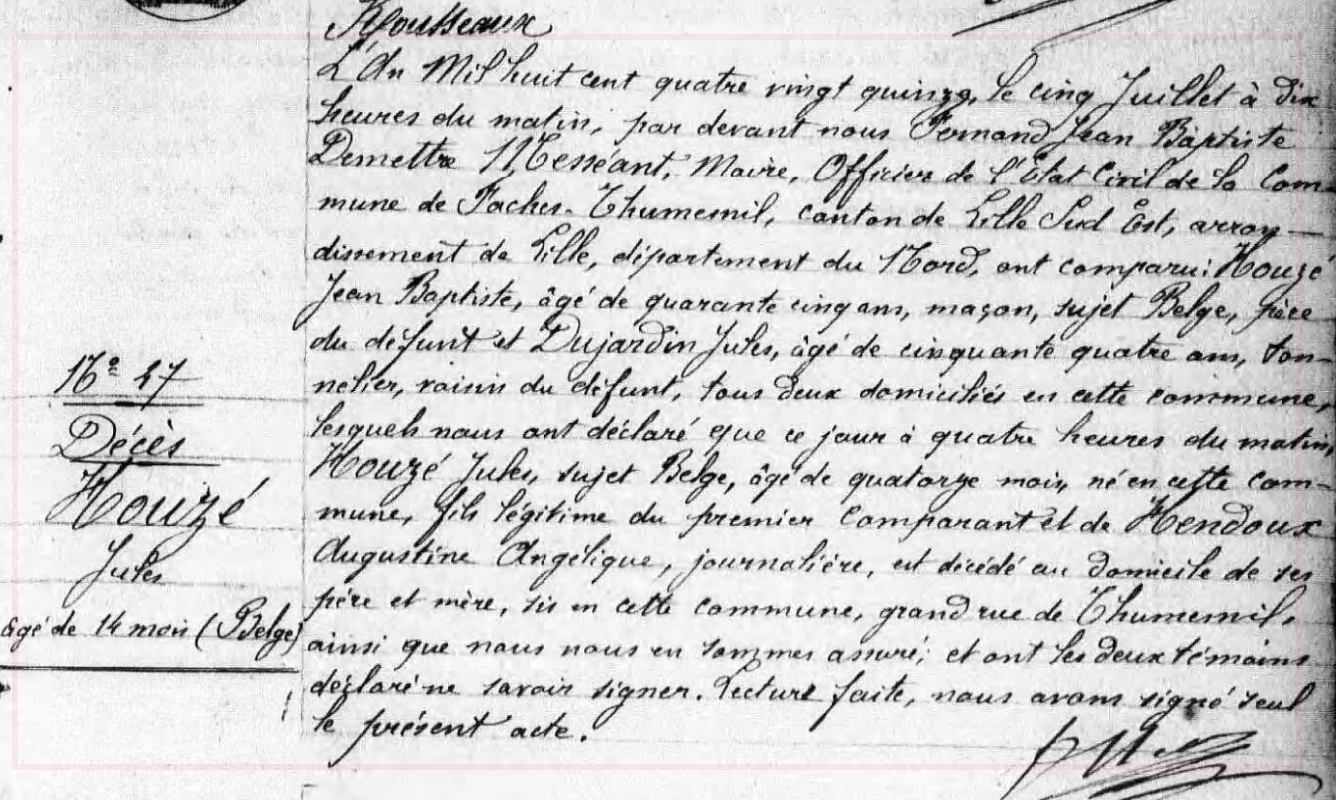 Rousseaux
L'An Mil huit cent quatre vingt quinze, le cinq Juillet à dix
heures du matin, par devant nous Fernand Jean Baptiste
Demettre Messéant, Maire, Officier de l'Etat Civil de la Com-
mune de Faches-Thumesnil, canton de Lille Sud Est, arron-
dissement de Lille, département du Nord, ont comparu: Houzé
Jean Baptiste, âgé de quarante cinq ans, maçon, sujet Belge, père
du défunt et Dujardin Jules, âgé de cinquante quatre ans, ton-
nelier, voisin du défunt, tous deux domiciliés en cette commune,
lesquels nous ont déclaré que ce jour à quatre heures du matin,
Houzé Jules, sujet Belge, âgé de quatorze mois, né en cette com-
mune, fils légitime du premier comparant et de Hendoux
Augustine Angélique, journalière, est décédé au domicile de ses
père et mère, sis en cette commune, grand rue de Thumesnil,
ainsi que nous nous en sommes assuré; et ont les deux témoins
déclaré ne savoir signer. Lecture faite, nous avons signé seul
le présent acte.
Nº 27
Décès
Houzé
Jules
âgé de 14 mois (Belge)